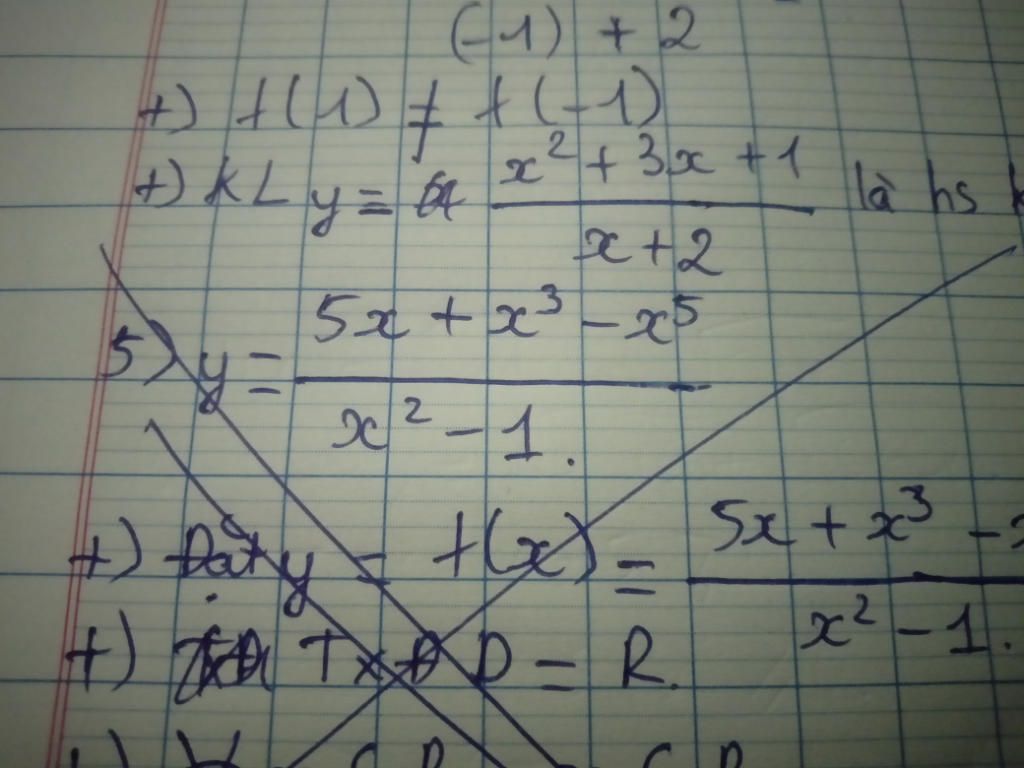 (-1) + 2
+) f(1) ≠ f(-1)
+) KL y = \frac{x^2 + 3x + 1}{x + 2} là hs
5) y = \frac{5x + x^3 - x^5}{x^2 - 1}.
+) Đặt y = f(x) = \frac{5x + x^3 -}{x^2 - 1}.
+) TXĐ D = R.